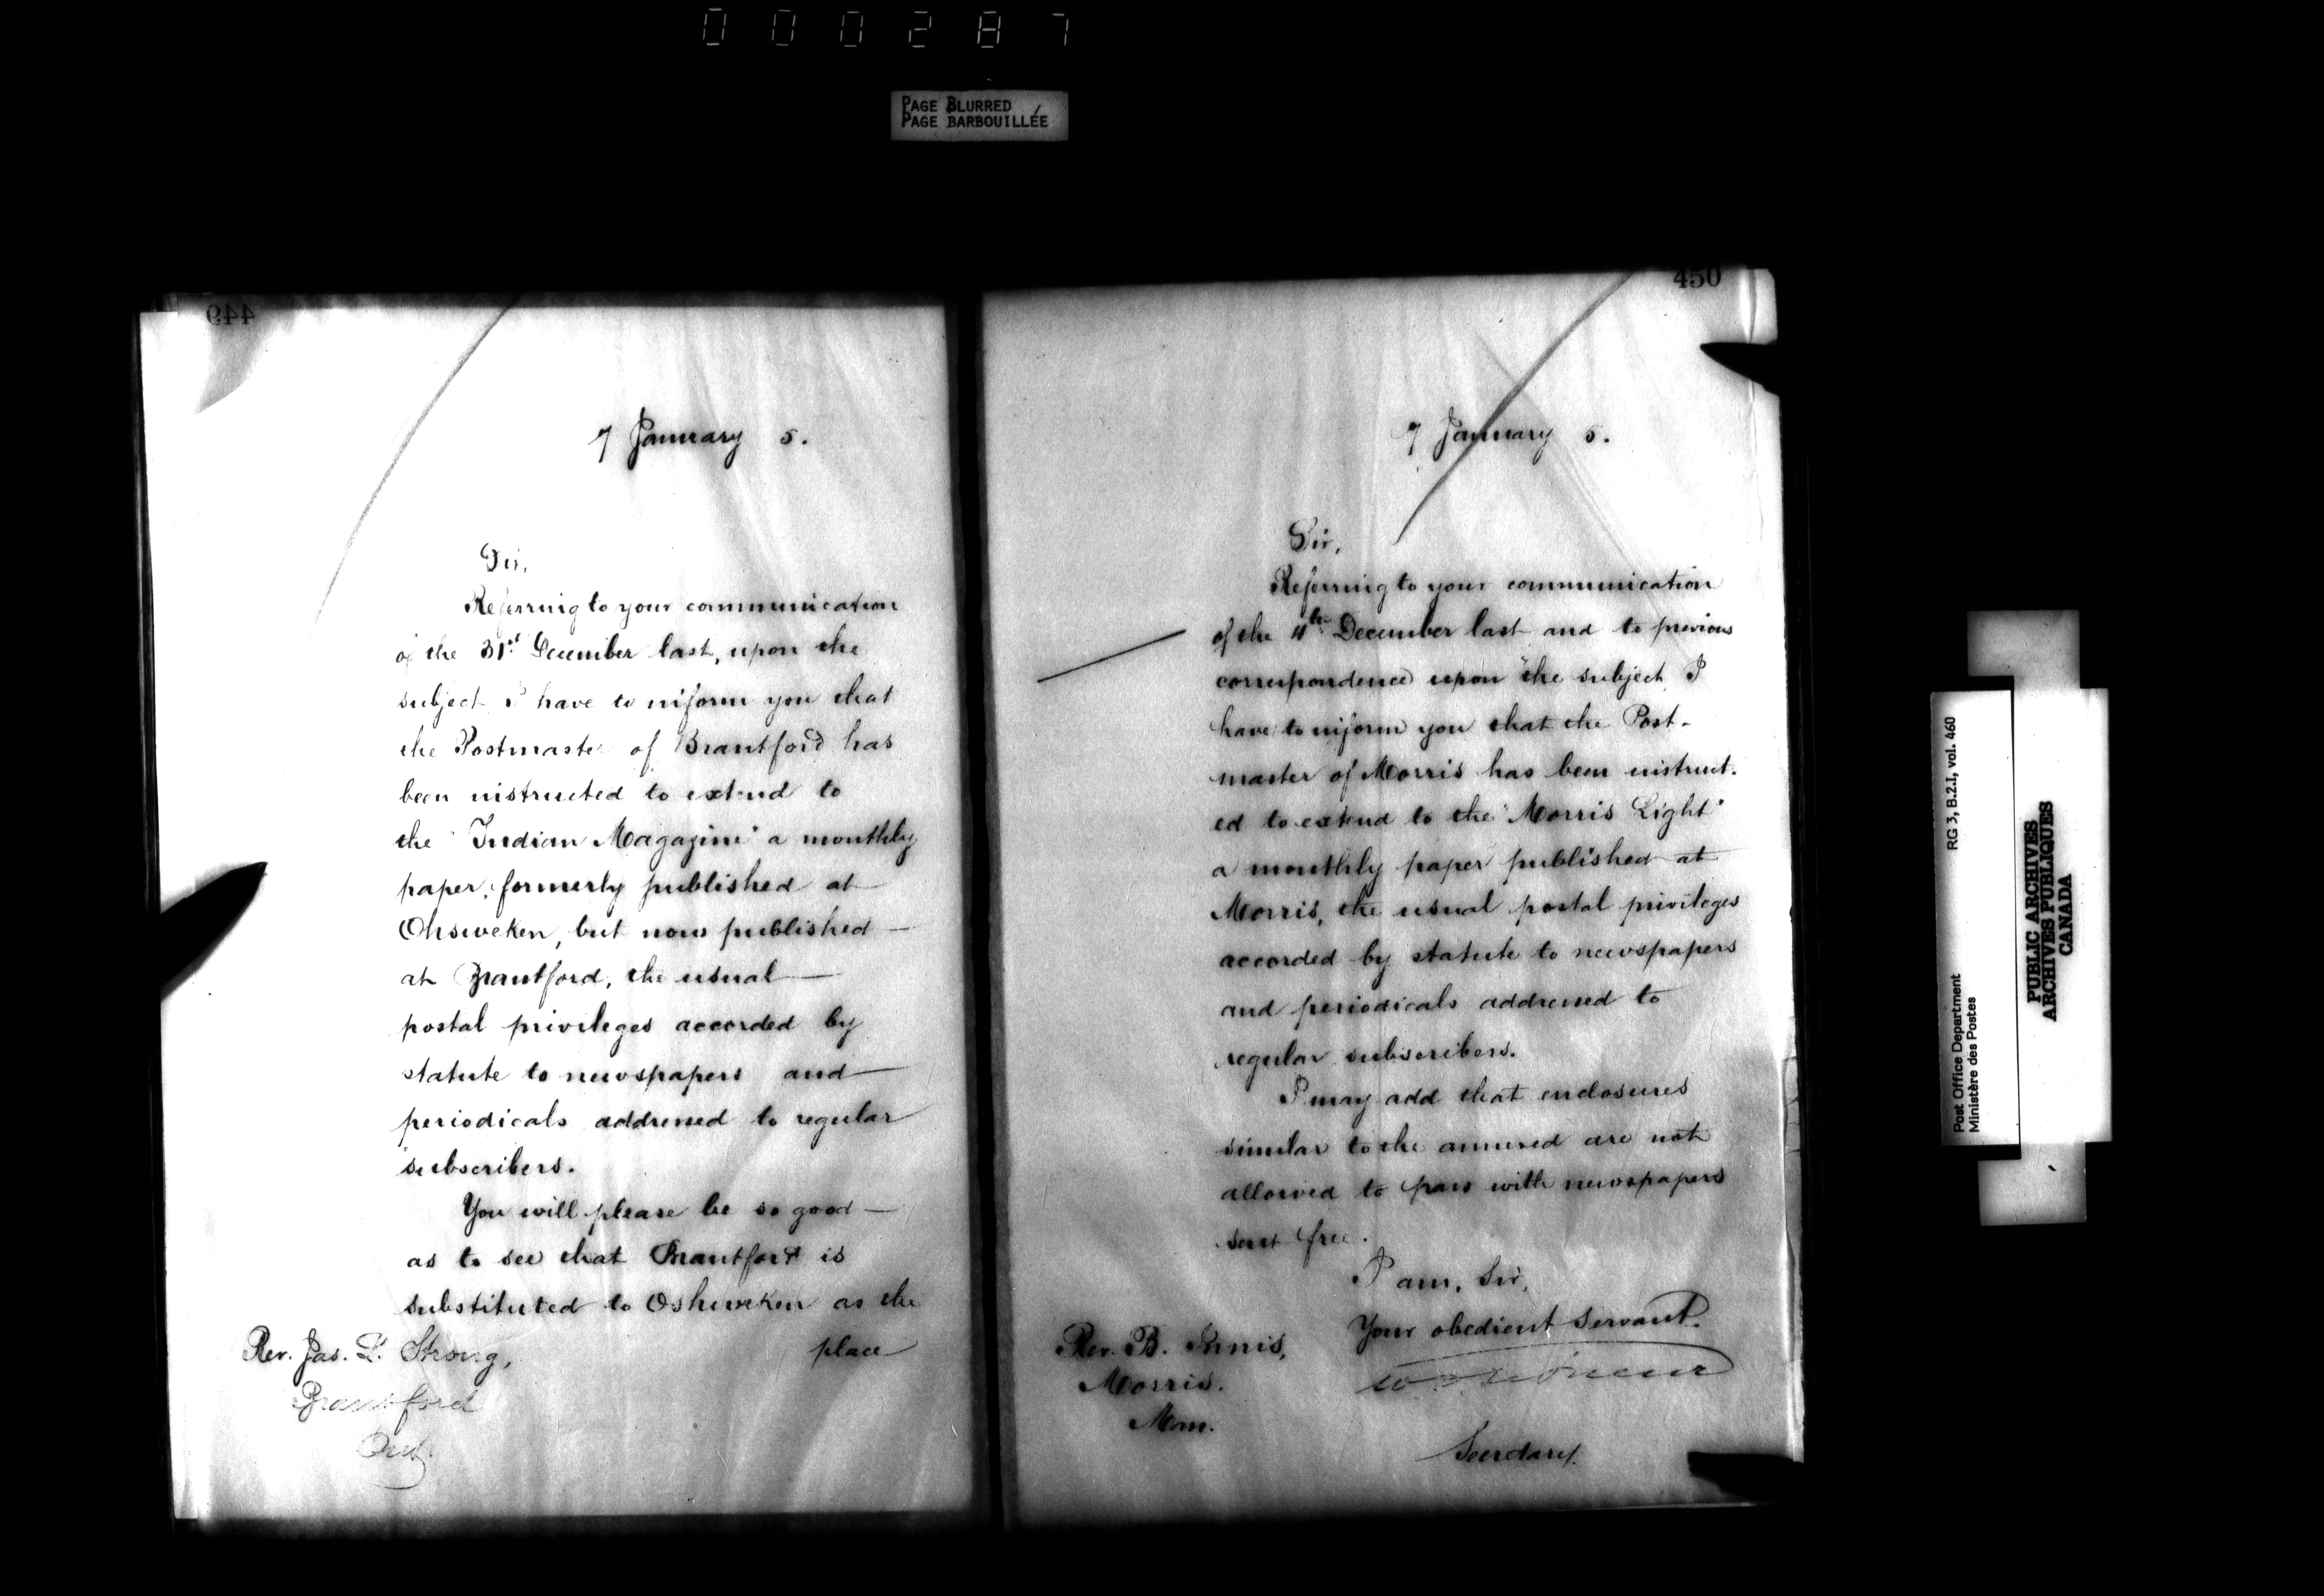 000287
PAGE BLURRED
PAGE BARBOUILLÉE
449
7 January 5.
Sir,
Referring to your communication
of the 31st December last, upon the
subject I have to inform you that
the Postmaster of Brantford has
been instructed to extend to
the "Indian Magazine" a monthly
paper, formerly published at
Ohsweken, but now published
at Brantford, the usual
postal privileges accorded by
statute to newspapers and
periodicals addressed to regular
subscribers.
You will please be so good
as to see that Brantford is
substituted to Oshweken as the
place
Rev. Jas. L. Strong,
Brantford
Ont.
450
7 January 5.
Sir,
Referring to your communication
of the December last and to previous
correspondence upon the subject I
have to inform you that the Post-
master of Morris has been instruct-
ed to extend to the "Morris Light"
a monthly paper published at
Morris, the usual postal privileges
accorded by statute to newspapers
and periodicals addressed to
regular subscribers.
I may add that enclosures
similar to the annexed are not
allowed to pass with newspapers
sent free.
I am, Sir,
Your obedient Servant.
Secretary.
Rev. B. Innis,
Morris.
Man.
Post Office Department
Ministère des Postes
RG 3, B.2.I, vol. 460
PUBLIC ARCHIVES
ARCHIVES PUBLIQUES
CANADA